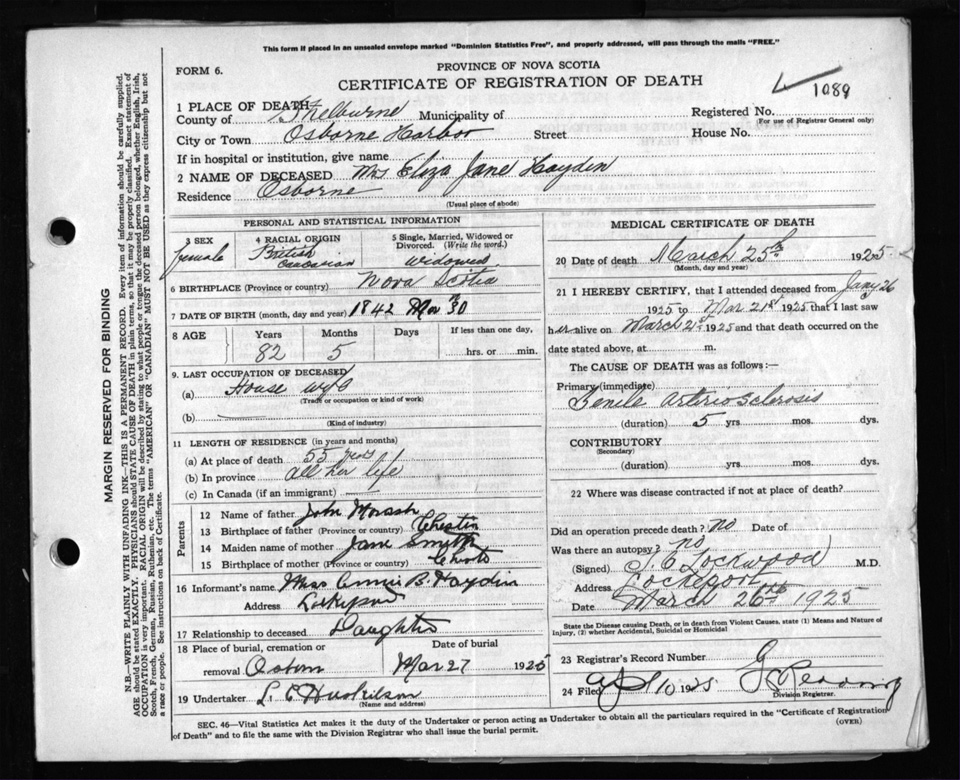 This form if placed in an unsealed envelope marked "Dominion Statistics Free", and properly addressed, will pass through the mails "FREE."
FORM 6.
PROVINCE OF NOVA SCOTIA
CERTIFICATE OF REGISTRATION OF DEATH
1089
1 PLACE OF DEATH
County of Shelburne Municipality of
Registered No.
(For use of Registrar General only)
City or Town Osborne Harbor Street House No.
If in hospital or institution, give name
2 NAME OF DECEASED Mrs Eliza Jane Haydin
Residence Osborne
(Usual place of abode)
PERSONAL AND STATISTICAL INFORMATION
3 SEX female
4 RACIAL ORIGIN British Caucasian
5 Single, Married, Widowed or Divorced. (Write the word.) widowed
6 BIRTHPLACE (Province or country) Nova Scotia
7 DATE OF BIRTH (month, day and year) 1842 30
8 AGE Years 82 Months 5 Days If less than one day, hrs. or min.
9. LAST OCCUPATION OF DECEASED
(a) House wife
(Trade or occupation or kind of work)
(b)
(Kind of industry)
11 LENGTH OF RESIDENCE (in years and months)
(a) At place of death 55 years
(b) In province all her life
(c) In Canada (if an immigrant)
Parents
12 Name of father John Morash
13 Birthplace of father (Province or country) Chester
14 Maiden name of mother Jane Smith
15 Birthplace of mother (Province or country)
16 Informant's name Miss Annie B. Haydin
Address Lockeport
17 Relationship to deceased Daughter
18 Place of burial, cremation or removal Osborn
Date of burial Mar 27 1925
19 Undertaker L. C Huskilson
(Name and address)
MEDICAL CERTIFICATE OF DEATH
20 Date of death March 25th 1925
(Month, day and year)
21 I HEREBY CERTIFY, that I attended deceased from Jany 26
1925 to Mar 21st 1925 that I last saw
her alive on March 21st 1925 and that death occurred on the
date stated above, at m.
The CAUSE OF DEATH was as follows:—
Primary (immediate)
Senile Arterio Sclerosis
(duration) 5 yrs. mos. dys.
CONTRIBUTORY
(Secondary)
(duration) yrs. mos. dys.
22 Where was disease contracted if not at place of death?
Did an operation precede death? no Date of
Was there an autopsy? no
(Signed) Lockwood M.D.
Address Lockeport
Date March 26th 1925
State the Disease causing Death, or in death from Violent Causes, state (1) Means and Nature of Injury, (2) whether Accidental, Suicidal or Homicidal
23 Registrar's Record Number
24 Filed Apl 10 1925
Division Registrar.
SEC. 46—Vital Statistics Act makes it the duty of the Undertaker or person acting as Undertaker to obtain all the particulars required in the "Certificate of Registration
of Death" and to file the same with the Division Registrar who shall issue the burial permit.
(OVER)
MARGIN RESERVED FOR BINDING
N.B.—WRITE PLAINLY WITH UNFADING INK—THIS IS A PERMANENT RECORD. Every item of information should be carefully supplied.
AGE should be stated EXACTLY. PHYSICIANS should STATE CAUSE OF DEATH in plain terms, so that it may be properly classified. Exact statement of
OCCUPATION is very important. RACIAL ORIGIN will be described by stating to what people or tongue the deceased person belonged, whether English, Irish,
Scotch, French, German, Russian, Ruthenian, etc. The terms "AMERICAN" OR "CANADIAN" MUST NOT BE USED as they express citizenship but not
a race or people. See instructions on back of Certificate.